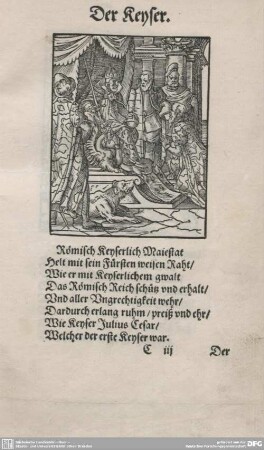 Der Keyser.
Römisch Keyserlich Maiestat
Helt mit sein Fürsten weisen Raht/
Wie er mit Keyserlichem gwalt
Das Römisch Reich schütz vnd erhalt/
Vnd aller Vngrechtigkeit wehr/
Dardurch erlang ruhm/preiß vnd ehr/
Wie Keyser Julius Cesar/
Welcher der erste Keyser war.
C iij Der
DFG